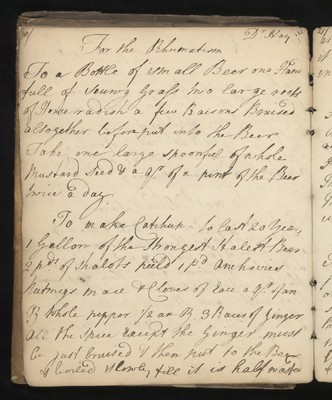 Dr Hay
For the Rhumatism
To a Bottle of small Beer one Hand
full of Scurvy Grass two large roots
of Horse radish a few Raisons Bruised
altogether before put into the Beer
Take one large spoonful of whole
Mustard Seed & a qr of a pint of the Beer
twice a day
To make Catchup to last 20 Years
1 Gallon of the Strongest Stalest Beer
2 pds of Shalots peild 1 pd Anchovies
Nutmegs mace & Cloves of Eace a qr of an
whole pepper 1/2 an 3 Races of Ginger
All the Spice Except the Ginger must
be just bruised & then put to the Beer
& boiled slowly till it is half wasted